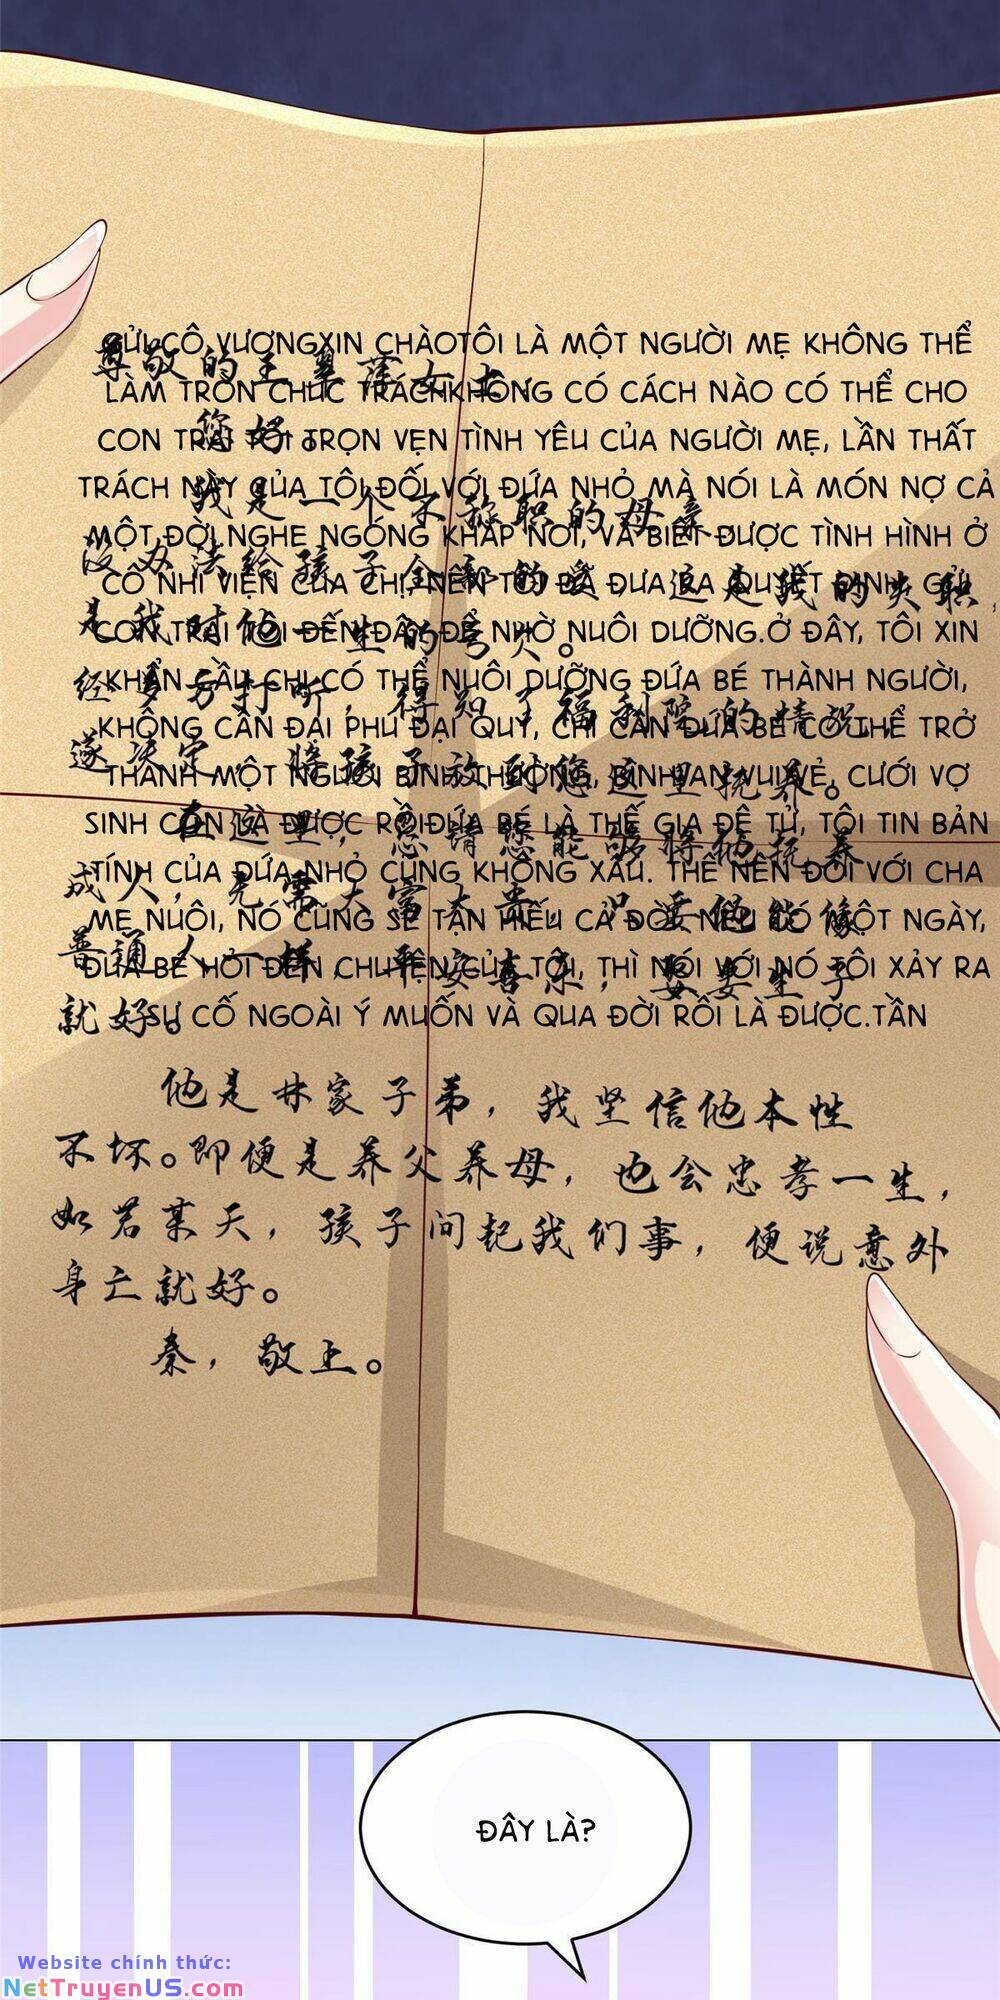 GỬI CÔ VƯƠNGXIN CHÀOTÔI LÀ MỘT NGƯỜI MẸ KHÔNG THỂ
LÀM TRÒN CHỨC TRÁCHKHÔNG CÓ CÁCH NÀO CÓ THỂ CHO
CON TRAI TÔI TRỌN VẸN TÌNH YÊU CỦA NGƯỜI MẸ, LẦN THẤT
TRÁCH NÀY CỦA TÔI ĐỐI VỚI ĐỨA NHỎ MÀ NÓI LÀ MÓN NỢ CẢ
MỘT ĐỜI.NGHE NGÓNG KHẮP NƠI, VÀ BIẾT ĐƯỢC TÌNH HÌNH Ở
CÔ NHI VIỆN CỦA CHỊ, NÊN TÔI ĐÃ ĐƯA RA QUYẾT ĐỊNH GỬI
CON TRAI TÔI ĐẾN ĐÂY ĐỂ NHỜ NUÔI DƯỠNG.Ở ĐÂY, TÔI XIN
KHẨN CẦU CHỊ CÓ THỂ NUÔI DƯỠNG ĐỨA BÉ THÀNH NGƯỜI,
KHÔNG CẦN ĐẠI PHÚ ĐẠI QUÝ, CHỈ CẦN ĐỨA BÉ CÓ THỂ TRỞ
THÀNH MỘT NGƯỜI BÌNH THƯỜNG, BÌNH AN VUI VẺ, CƯỚI VỢ
SINH CON LÀ ĐƯỢC RỒIĐỨA BÉ LÀ THẾ GIA ĐỆ TỬ, TÔI TIN BẢN
TÍNH CỦA ĐỨA NHỎ CŨNG KHÔNG XẤU. THẾ NÊN ĐỐI VỚI CHA
MẸ NUÔI, NÓ CŨNG SẼ TẬN HIẾU CẢ ĐỜI. NẾU CÓ MỘT NGÀY,
ĐỨA BÉ HỎI ĐẾN CHUYỆN CỦA TÔI, THÌ NÓI VỚI NÓ TÔI XẢY RA
SỰ CỐ NGOÀI Ý MUỐN VÀ QUA ĐỜI RỒI LÀ ĐƯỢC.TẦN
尊敬的王 女士
您好。
我是一个不称职的母亲
没办法给孩子全部的爱，这是我的失职，
是我对他一生的亏欠。
经多方打听，得知了福利院的情况，
遂决定，将孩子放到您这里抚养。
在这里，恳请您能够将他抚养
成人，无需大富大贵，只要他能像
普通人一样，平安喜乐，娶妻生子
就好。
他是林家子弟，我坚信他本性
不坏。即便是养父养母，也会忠孝一生，
如若某天，孩子问起我们事，便说意外
身亡就好。
秦，敬上。
ĐÂY LÀ?
Website chính thức:
NetTruyenUS.com